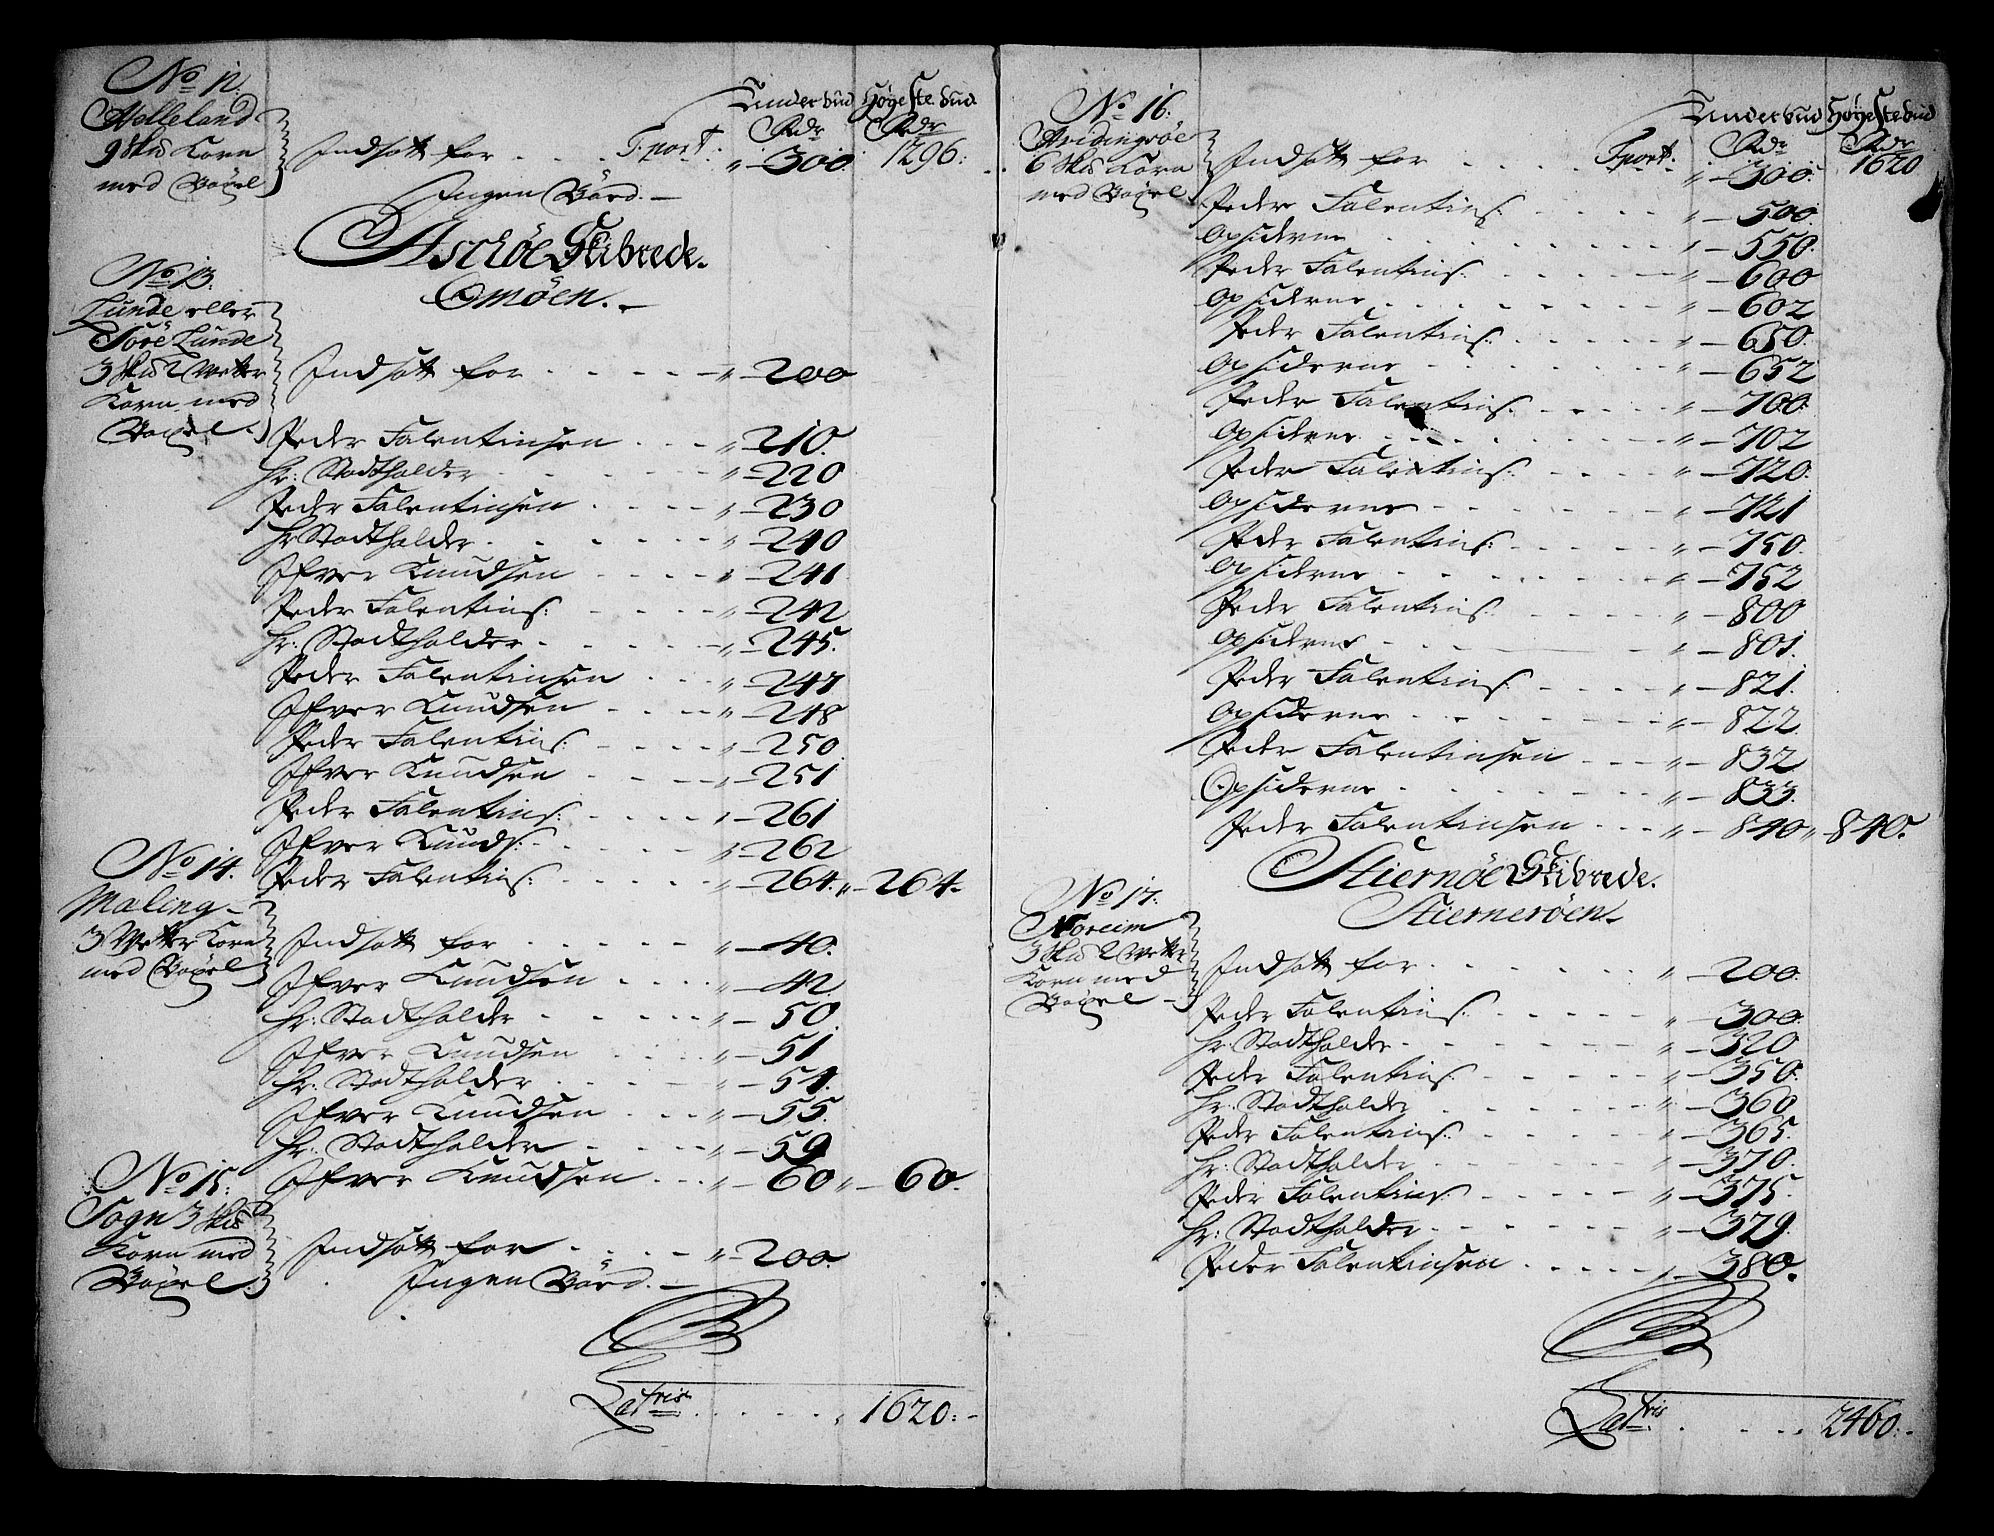 No 12.
Helleland
9 Skis Korn
med Böxel
Under bud Høyeste bud.
Rdr Rdr
Tport.
Indsatt for . . . . " 300. 1296.
Ingen Böed.
Aschöe Skibrede.
Omöen.
No 13.
Lunde eller
Söre Lunde
3 Skis 2 Vetter
Korn med
Böxel.
Indsatt for . . . . " 200
Peder Falentinsen . . . " 210.
Hr: Stadtholder . . . " 220
Peder Falentinsen . . . " 230
Hr Stadtholder . . . " 240
Ifver Knudsen . . . " 241
Peder Falentins: . . . " 242
Hr: Stadtholder . . . " 245.
Peder Falentinsen . . . " 247
Ifver Knudsen . . . " 248
Peder Falentins: . . . " 250
Ifver Knudsen . . . " 251
Peder Falentins: . . . " 261
Ifver Knuds: . . . " 262
Peder Falentins: . . . " 264. " 264.
No 14.
Mæling
3 Vetter Korn
med Böxel
Indsatt for . . . . " 40.
Ifver Knudsen . . . " 42.
Hr: Stadtholder . . . " 50.
Ifver Knudsen . . . " 51
Hr: Stadtholder . . . " 54.
Ifver Knudsen . . . " 55.
Hr: Stadtholder . . . " 59
Ifver Knudsen . . . " 60 " 60.
No 15.
Sogn 3 Skis
Korn med
Böxel.
Indsatt for . . . . " 200.
Ingen Böed.
Latris . . . . " 1620.
No 16.
6 Skis Korn
med Böxel.
Under bud Høyeste bud
Rdr Rdr
Tport.
Indsatt for . . . . " 300. 1620
Peder Falentins: . . . " 500.
Opsiderne . . . " 550.
Peder Falentins: . . . " 600
Opsiderne . . . " 602
Peder Falentins: . . . " 650.
Opsiderne . . . " 652
Peder Falentins: . . . " 700.
Opsiderne . . . " 702
Peder Falentins: . . . " 720.
Opsiderne . . . " 721
Peder Falentins: . . . " 750.
Opsiderne . . . " 752
Peder Falentins: . . . " 800
Opsiderne . . . " 801.
Peder Falentins: . . . " 821.
Opsiderne . . . " 822.
Peder Falentinsen . . . " 832
Opsiderne . . . " 833.
Peder Falentinsen . . . " 840 " 840.
Stiernöe Skibrede.
Stierneröen.
No 17.
Noreim
3 Skis 2 Vetter
Korn med
Böxel
Indsatt for . . . . " 200.
Peder Falentins: . . . " 300.
Hr: Stadtholder . . . " 320
Peder Falentins: . . . " 350.
Hr: Stadtholder . . . " 360
Peder Falentins: . . . " 365.
Hr: Stadtholder . . . " 370.
Peder Falentins: . . . " 375.
Hr: Stadtholder . . . " 379.
Peder Falentinsen . . . " 380.
Latris . . . . 2460.